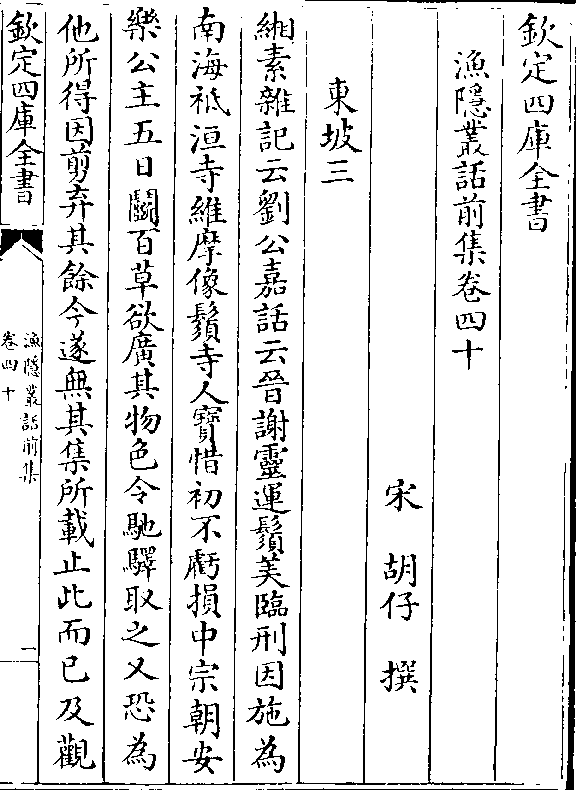 欽定四庫全書
漁隱叢話前集卷四十
宋　胡仔　撰
東坡三
緗素雜記云劉公嘉話云晉謝靈運鬚美臨刑因施為
南海祗洹寺維摩像鬚寺人寳惜初不虧損中宗朝安
樂公主五日鬭百草欲廣其物色令馳驛取之又恐為
他所得因剪弃其餘今遂無其集所載止此而已及觀
欽定四庫全書
漁隱叢話前集
卷四十
一